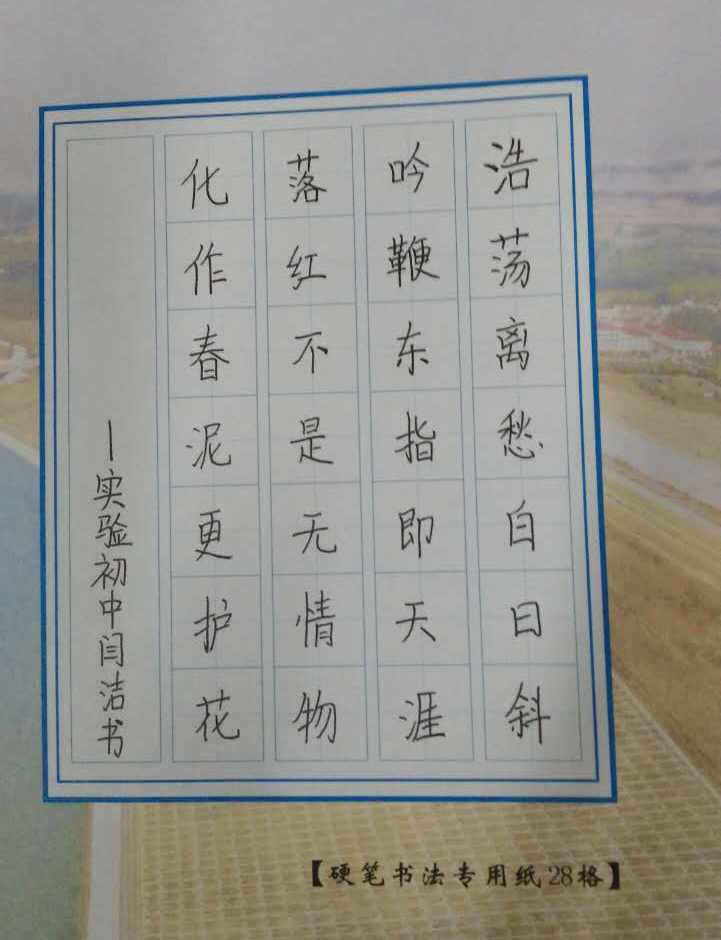 浩荡离愁白日斜
吟鞭东指即天涯
落红不是无情物
化作春泥更护花
—实验初中闫洁书
【硬笔书法专用纸28格】